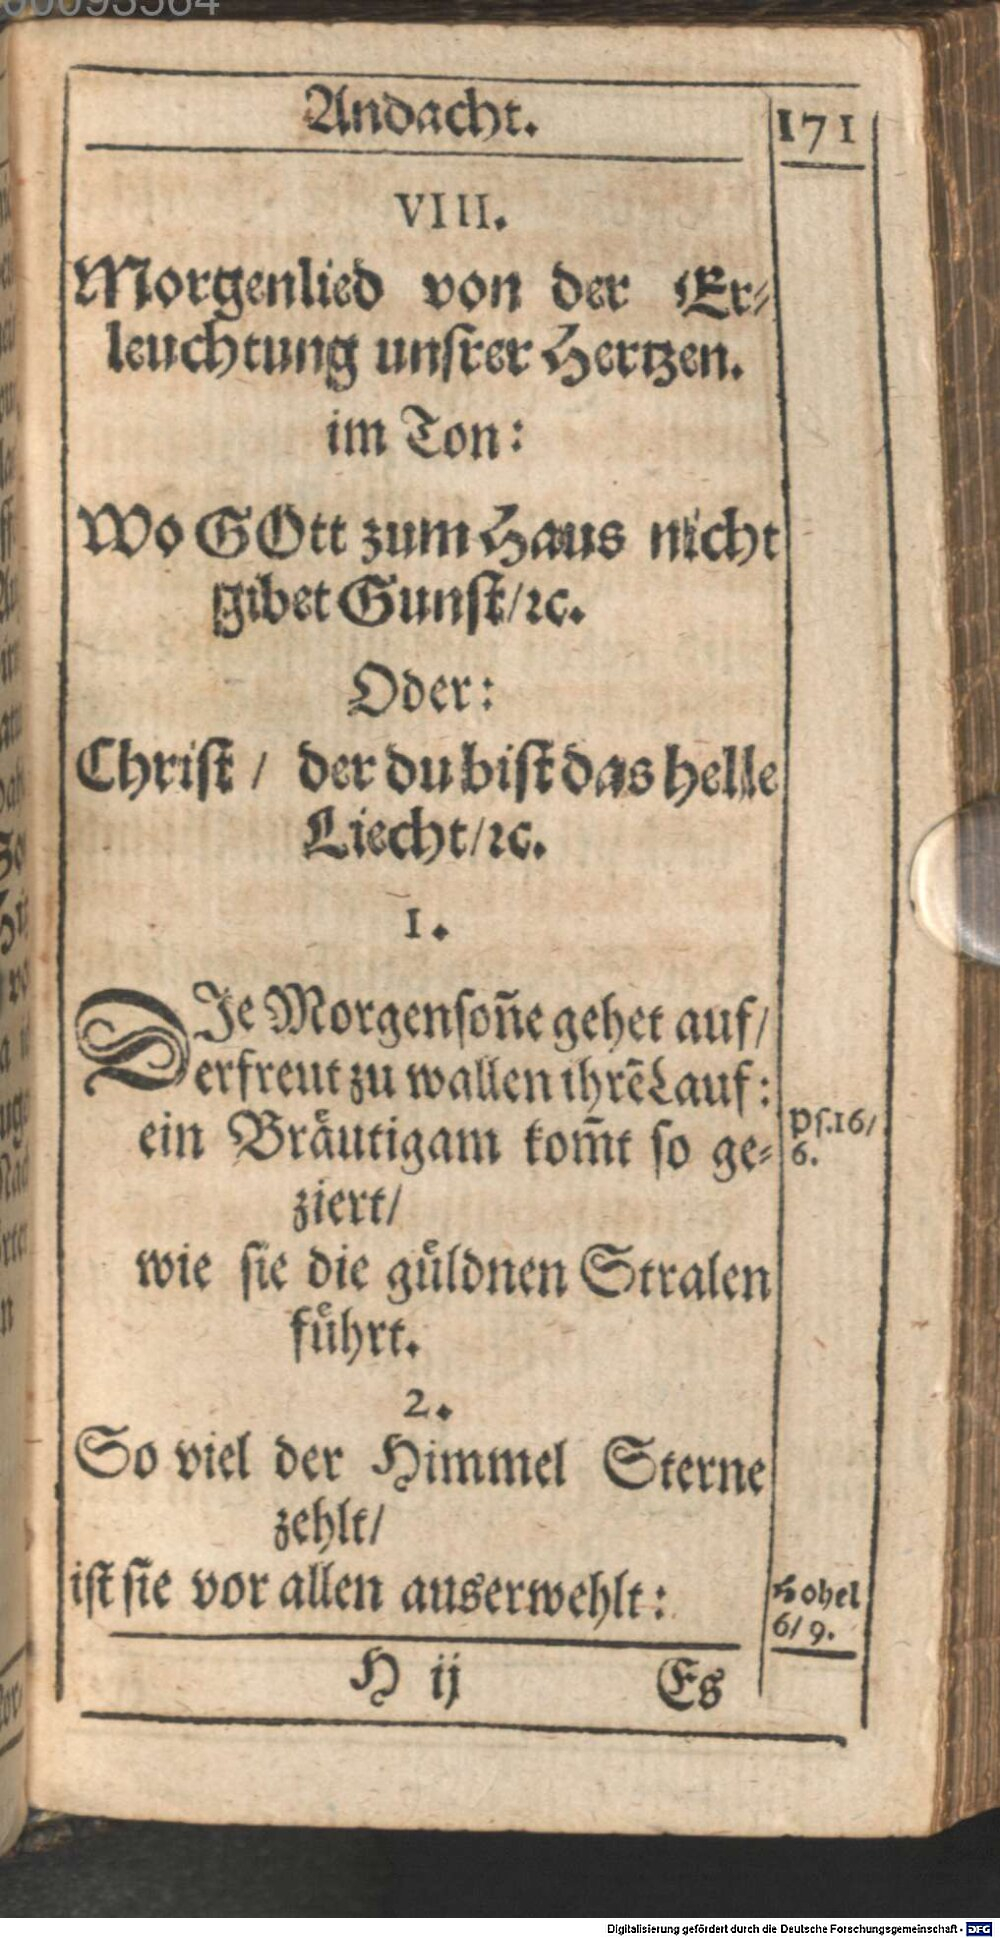 Andacht.
171
VIII.
Morgenlied von der Er⸗
leuchtung unſrer Hertzen.
im Ton:
Wo GOtt zum Haus nicht
gibet Gunſt/ꝛc.
Oder:
Chriſt / der du biſt das helle
Liecht/ꝛc.
1.
DJe Morgenſoñe gehet auf/
erfreut zu wallen ihrẽ Lauf:
ein Bräutigam kom̃t ſo ge⸗
ziert/
wie ſie die güldnen Stralen
führt.
Pſ.16/
6.
2.
So viel der Himmel Sterne
zehlt/
iſt ſie vor allen auserwehlt:
Hohel
6/9.
H ij
Es
Digitalisierung gefördert durch die Deutsche Forschungsgemeinschaft - DFG